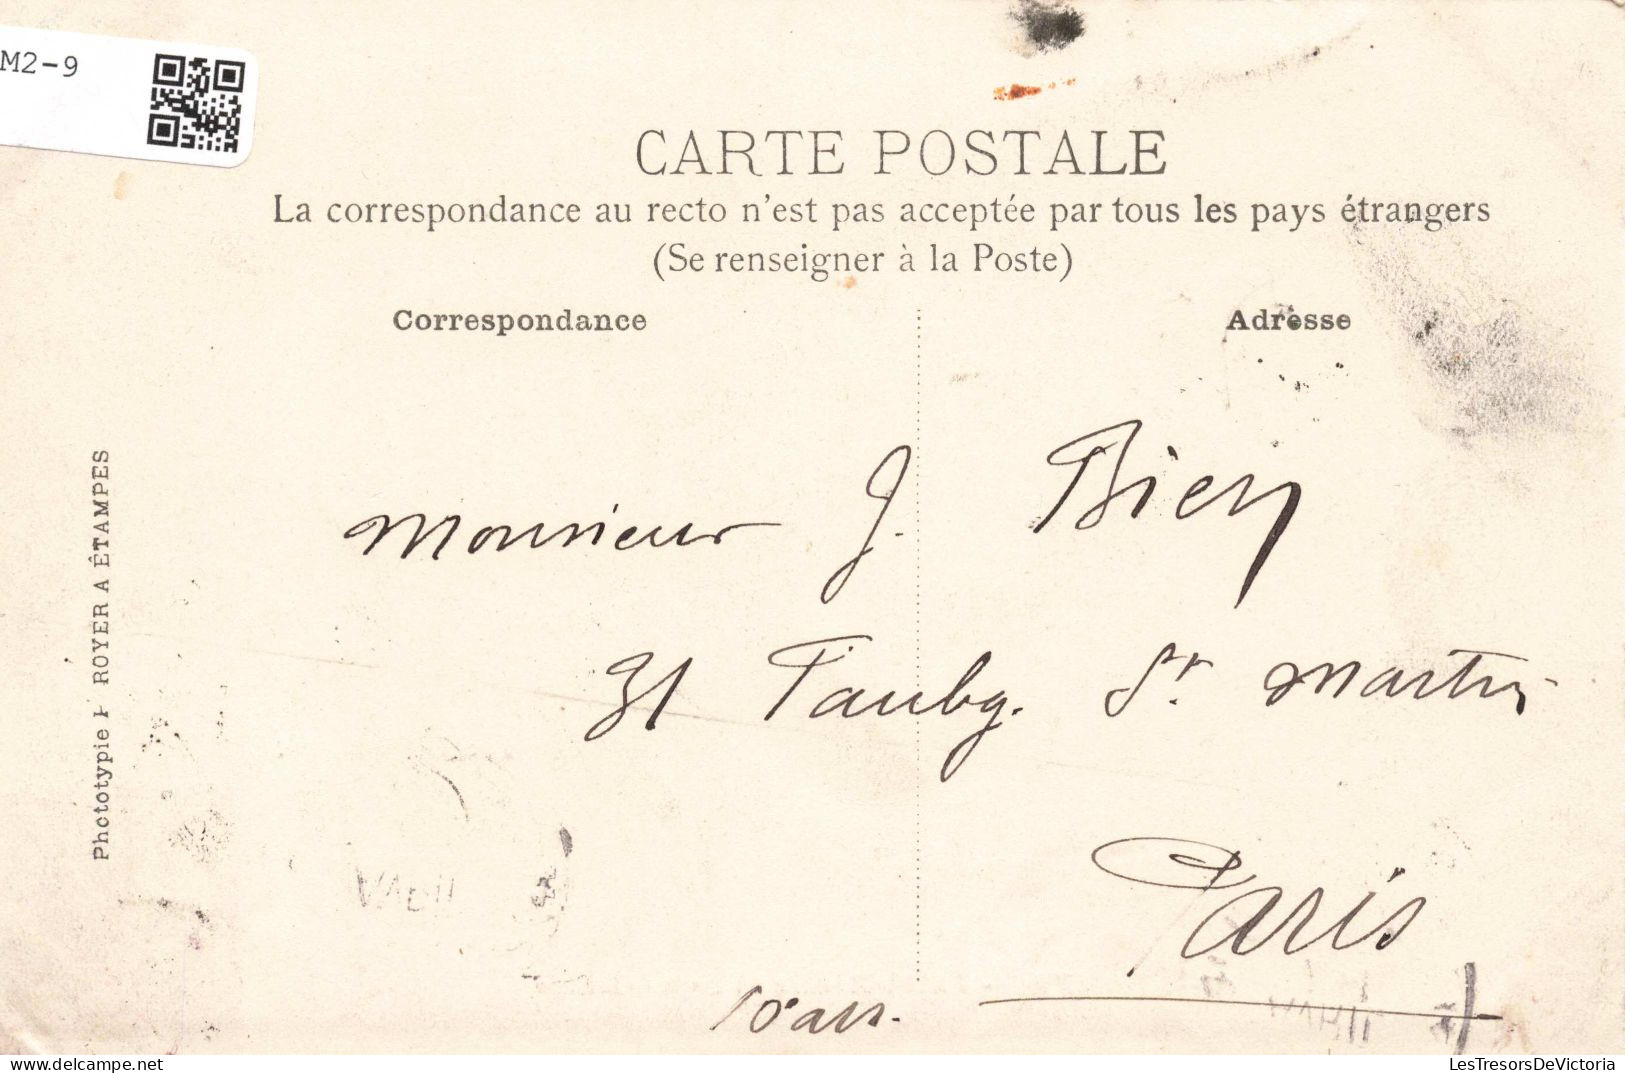 M2-9
CARTE POSTALE
La correspondance au recto n'est pas acceptée par tous les pays étrangers
(Se renseigner à la Poste)
Correspondance
Adresse
Phototypie ROYER A ÉTAMPES
Monsieur J. Biery
31 Faubg. St. Martin
Paris
10e arr.
LesTresorsDeVictoria